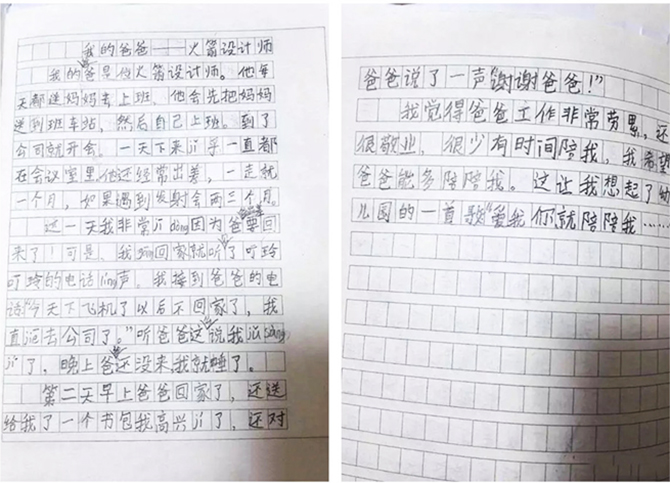 我的爸爸——火箭设计师
我的爸爸是火箭设计师。他每
天都送妈妈去上班,他会先把妈妈
送到班车站,然后自己上班。到了
公司就开会。一天下来jī乎一直都
在会议室里他还经常出差,一走就
一个月,如果遇到发射会两三个月。
过一天我非常jī dòng因为爸爸要回
来了!可是,我gāng回家就听了叮玲
叮玲的电话líng声。我接到爸爸的电
话“今天下飞机了以后不回家了,我
直jiē去公司了。”听爸爸这说我
jí了,晚上爸还没来我就睡了。
第二天早上爸爸回家了,还送
给我了一个书包我高兴jí了,还对
爸爸说了一声“谢谢爸爸!”
我觉得爸爸工作非常劳累,还
很敬业,很少有时间陪我,我希望
爸爸能多陪陪我。这让我想起了幼
儿园的一首歌“爱我你就陪陪我……